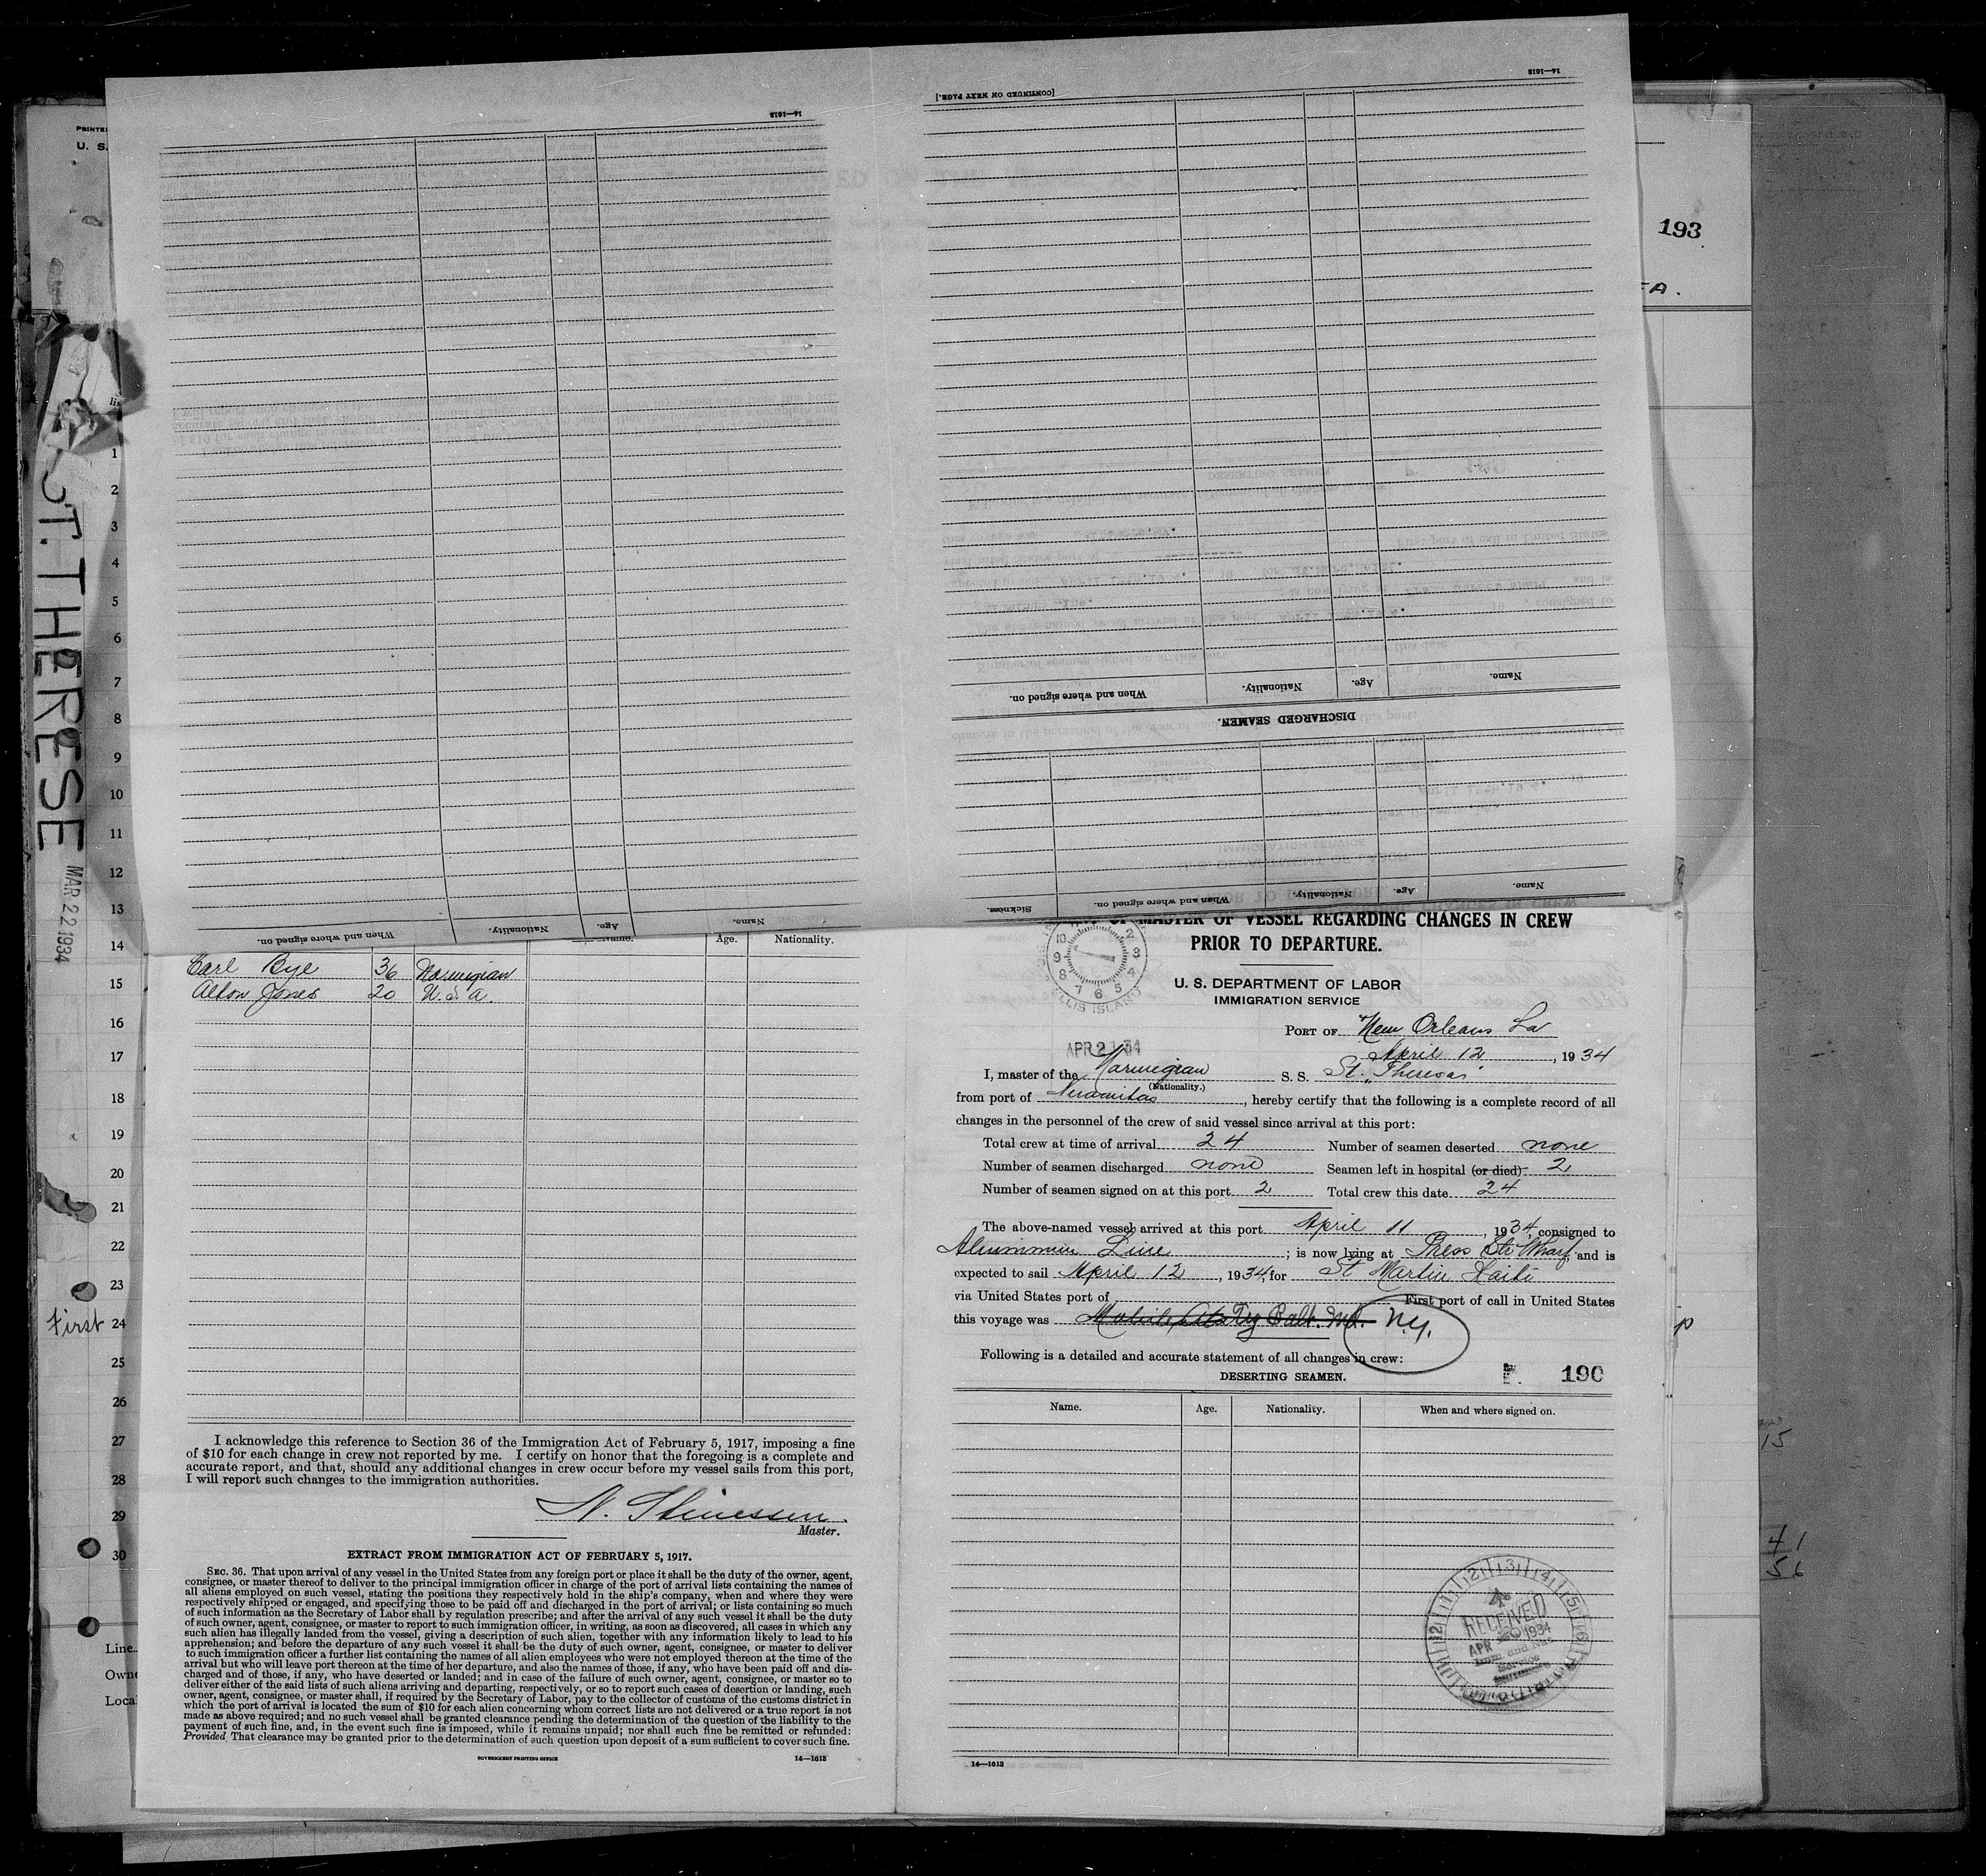 14—1613
[CONTINUED ON NEXT PAGE.]
14—1613
When and where signed on.
Nationality.
Age.
Name.
DISCHARGED SEAMEN.
Name.
Age.
Nationality.
When and where signed on.
Sickness.
When and where signed on.
Nationality.
Age.
Name.
PRINTE
U. S.
193
ST. THERESE
MAR 22 1934
1
2
3
4
5
6
7
8
9
10
11
12
13
14
15
16
17
18
19
20
21
22
23
First 24
25
26
27
28
29
30
Line
Owne
Loca
Name. Age. Nationality.
Carl Bye 36 Norwegian
Alton Jones 20 U.S.A.
I acknowledge this reference to Section 36 of the Immigration Act of February 5, 1917, imposing a fine
of $10 for each change in crew not reported by me. I certify on honor that the foregoing is a complete and
accurate report, and that, should any additional changes in crew occur before my vessel sails from this port,
I will report such changes to the immigration authorities.
Master.
EXTRACT FROM IMMIGRATION ACT OF FEBRUARY 5, 1917.
SEC. 36. That upon arrival of any vessel in the United States from any foreign port or place it shall be the duty of the owner, agent,
consignee, or master thereof to deliver to the principal immigration officer in charge of the port of arrival lists containing the names of
all aliens employed on such vessel, stating the positions they respectively hold in the ship's company, when and where they were
respectively shipped or engaged, and specifying those to be paid off and discharged in the port of arrival; or lists containing so much
of such information as the Secretary of Labor shall by regulation prescribe; and after the arrival of any such vessel it shall be the duty
of such owner, agent, consignee, or master to report to such immigration officer, in writing, as soon as discovered, all cases in which any
such alien has illegally landed from the vessel, giving a description of such alien, together with any information likely to lead to his
apprehension; and before the departure of any such vessel it shall be the duty of such owner, agent, consignee, or master to deliver
to such immigration officer a further list containing the names of all alien employees who were not employed thereon at the time of the
arrival but who will leave port thereon at the time of her departure, and also the names of those, if any, who have been paid off and dis-
charged and of those, if any, who have deserted or landed; and in case of the failure of such owner, agent, consignee, or master so to
deliver either of the said lists of such aliens arriving and departing, respectively, or so to report such cases of desertion or landing, such
owner, agent, consignee, or master shall, if required by the Secretary of Labor, pay to the collector of customs of the customs district in
which the port of arrival is located the sum of $10 for each alien concerning whom correct lists are not delivered or a true report is not
made as above required; and no such vessel shall be granted clearance pending the determination of the question of the liability to the
payment of such fine, and, in the event such fine is imposed, while it remains unpaid; nor shall such fine be remitted or refunded:
Provided That clearance may be granted prior to the determination of such question upon deposit of a sum sufficient to cover such fine.
GOVERNMENT PRINTING OFFICE 14—1613
OF MASTER OF VESSEL REGARDING CHANGES IN CREW
PRIOR TO DEPARTURE.
U. S. DEPARTMENT OF LABOR
IMMIGRATION SERVICE
ELLIS ISLAND
PORT OF New Orleans La
April 12, 1934
APR 21 34
I, master of the Norwegian S. S. St. "Theresa"
(Nationality.)
from port of , hereby certify that the following is a complete record of all
changes in the personnel of the crew of said vessel since arrival at this port:
Total crew at time of arrival 24 Number of seamen deserted none
Number of seamen discharged none Seamen left in hospital (or died) 2
Number of seamen signed on at this port 2 Total crew this date 24
The above-named vessel arrived at this port April 11, 1934, consigned to
Aluminum Line; is now lying at Press Str Wharf, and is
expected to sail April 12, 1934, for St Martin Haiti
via United States port of First port of call in United States
this voyage was Balt. Md. N.Y.
Following is a detailed and accurate statement of all changes in crew:
DESERTING SEAMEN.
190
Name. Age. Nationality. When and where signed on.
RECEIVED
APR 20 1934
14—1613
15
41
56